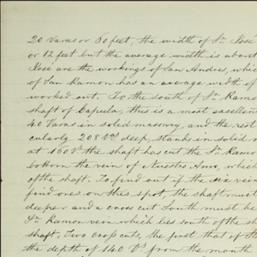 20 Varas or 50 feet, the width of Sn. José
or 12 feet but the average width is about
José are the workings of San Andres, which
of San Ramon has an average width of
worked out. To the south of Sn. Ramon
shaft of Capulin, this is a most excellent
40 Varas in solid masonry, and the rest
cularly 208 Vs. deep, stands in solid
at 160 Vs. the shaft has cut the Sn. Ramon
bottom the vein of Nuestro Amo, which
of the shaft. To find out if the vein
find ores on this spot, the shaft must
deeper and a cross cut South must be
Sn. Ramon vein which lies south of the sh
shaft. Two cross cuts, the first that of th
the depth of 140 Vs. from the mouth